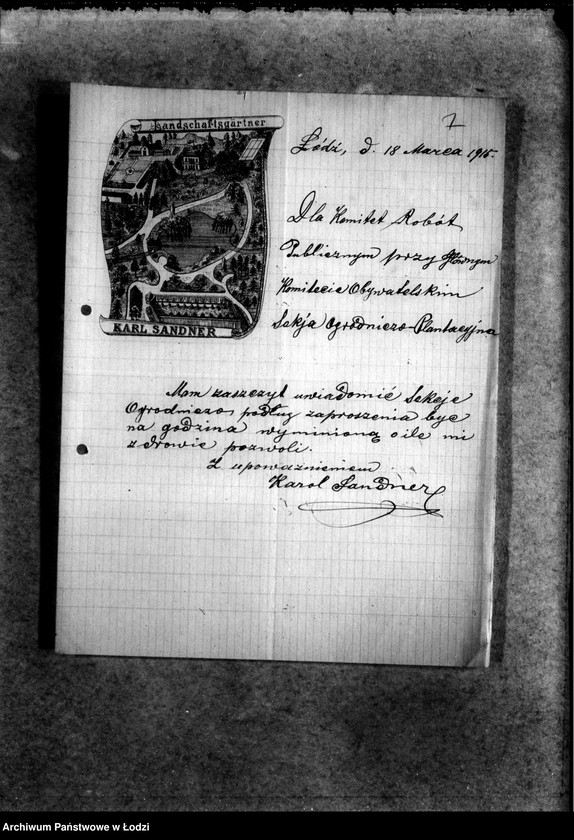 Landschaftsgärtner
KARL SANDNER
7
Łódź, d. 18 Marca 1915.
Dla Komitet Robót
Publicznym przy Głównym
Komitecie Obywatelskim
Sekja Ogrodniczo-Plantacyjna
Mam zaszczyt uwiadomić Sekcje
Ogrodniczo, podług zaproszenia być
na godzina wyminioną o ile mi
zdrowie pozwoli.
Z upoważnieniem
Karol Sandner
Archiwum Państwowe w Łodzi